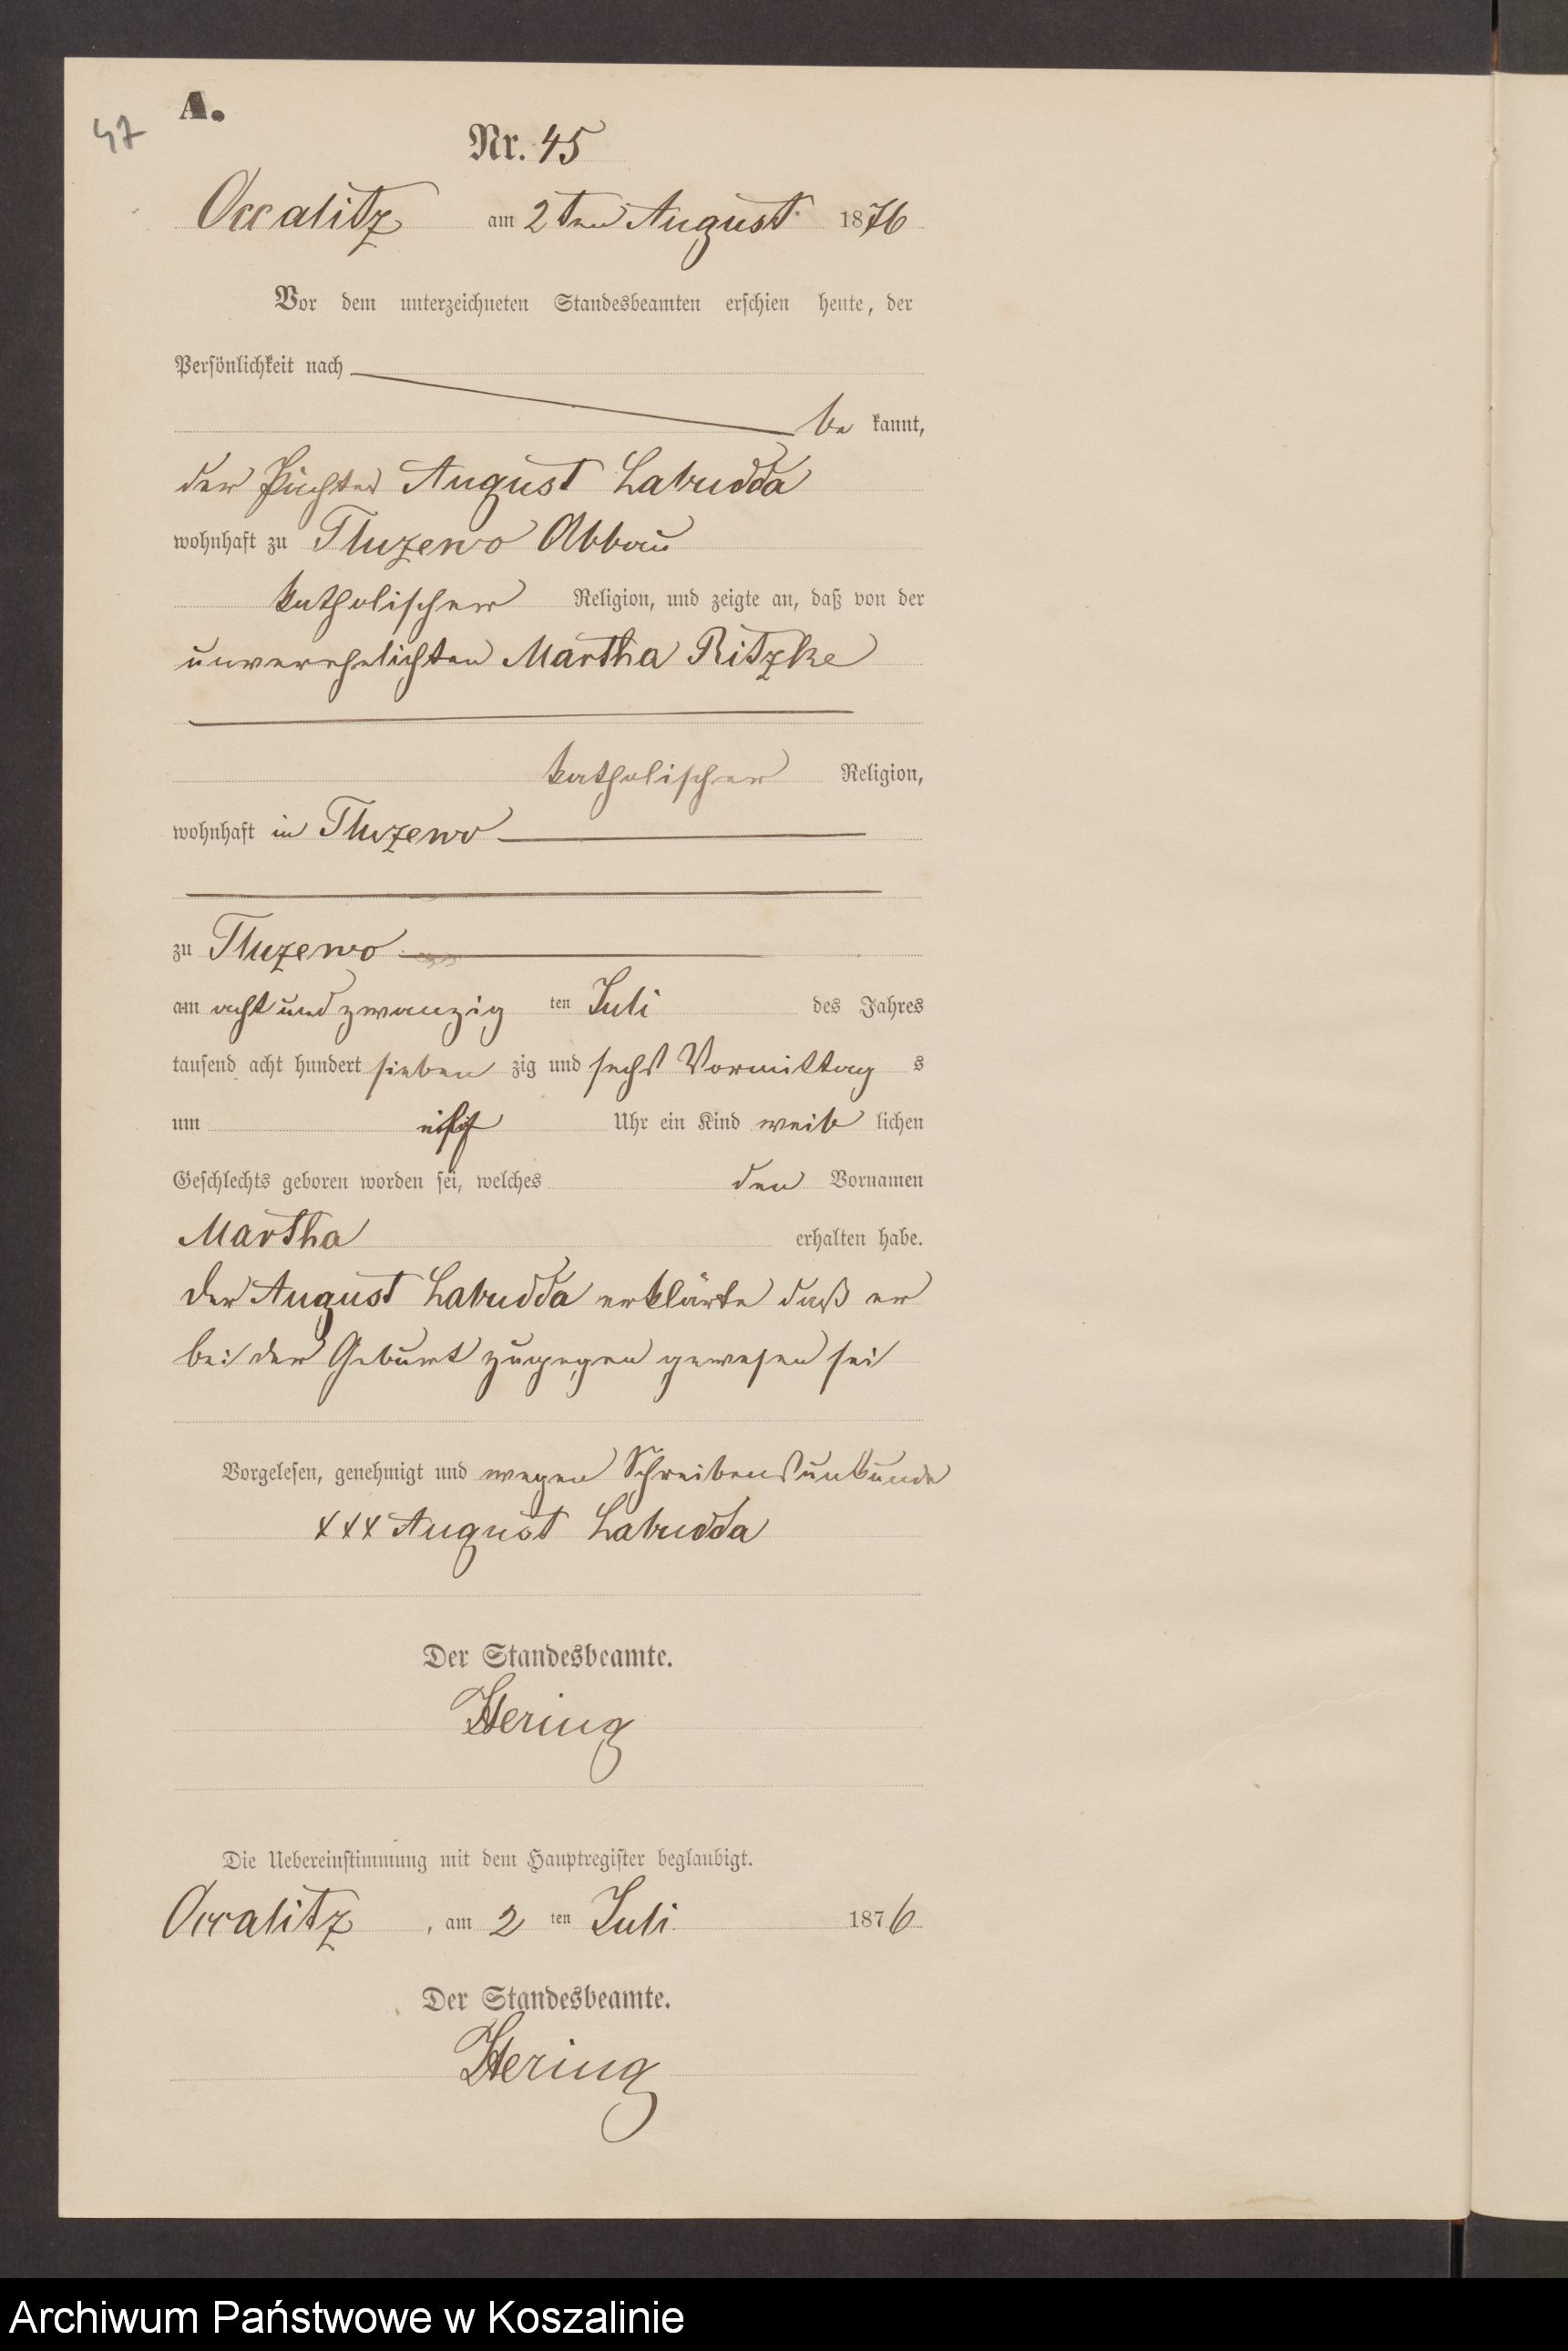 47
A.
Nr. 45
Occalitz am 2ten August 1876
Vor dem unterzeichneten Standesbeamten erschien heute, der
Persönlichkeit nach
be kannt,
der Pächter August Labudda
wohnhaft zu Tluzewo Abbau
katholischer Religion, und zeigte an, daß von der
unverehelichten Martha Ritzke
katholischer Religion,
wohnhaft in Tluzewo
zu Tluzewo
am acht und zwanzig ten Juli des Jahres
tausend acht hundert sieben zig und sechs Vormittag s
um Uhr ein Kind weib lichen
Geschlechts geboren worden sei, welches den Vornamen
Martha erhalten habe.
Der August Labudda erklärte daß er
bei der Geburt zugegen gewesen sei
Vorgelesen, genehmigt und wegen Schreibensunkunde
xxx August Labudda
Der Standesbeamte.
Hering
Die Uebereinstimmung mit dem Hauptregister beglaubigt.
Occalitz, am 2 ten Juli 1876
Der Standesbeamte.
Hering
Archiwum Państwowe w Koszalinie